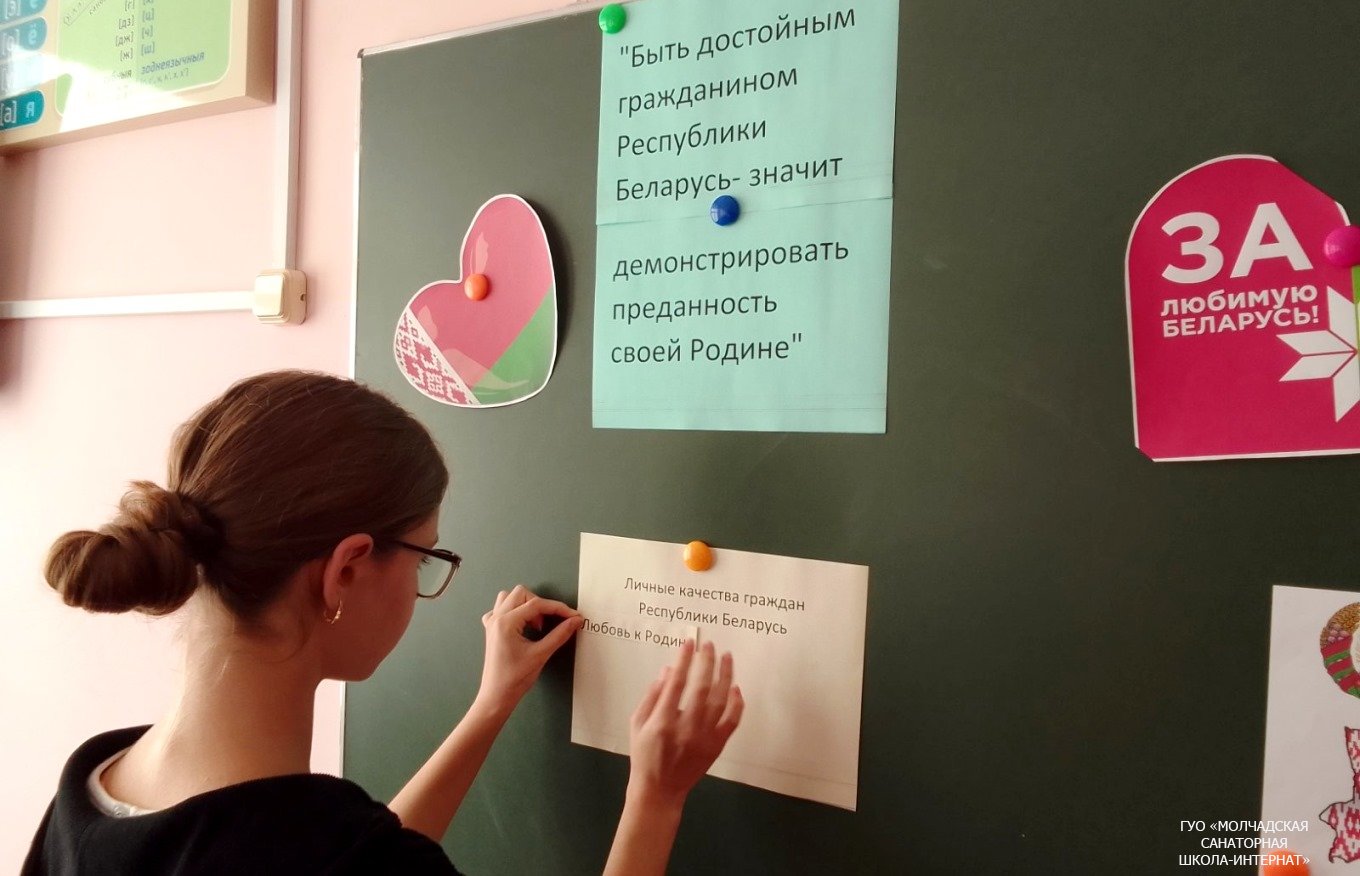 [г]
[дз]
[дж]
[ж]
[ц]
[ч]
[ш]
заднеязычныя
[а] я
"Быть достойным
гражданином
Республики
Беларусь- значит
демонстрировать
преданность
своей Родине"
ЗА
ЛЮБИМУЮ
БЕЛАРУСЬ!
Личные качества граждан
Республики Беларусь
Любовь к Родин
ГУО «МОЛЧАДСКАЯ
САНАТОРНАЯ
ШКОЛА-ИНТЕРНАТ»